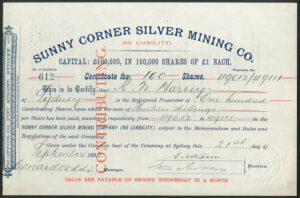 SUNNY CORNER SILVER MINING CO.
(NO LIABILITY)
CAPITAL: £100,000, IN 100,000 SHARES OF £1 EACH.
No. of Certificate
612 Certificate for 100 Shares.
This is to Certify, that Harvey
of Sydney is the Registered Proprietor of One hundred
Contributing Shares, upon which the sum of Shillings
per Share has been paid, numbered respectively from 119012 to 119111 in the
SUNNY CORNER SILVER MINING COMPANY (NO LIABILITY), subject to the Memorandum and Rules
and Regulations of the said Company.
Given under the Common Seal of the Company at Sydney this 21st day of
September
CONTRIBUTING.
CALLS ARE PAYABLE ON SECOND WEDNESDAY IN A MONTH.